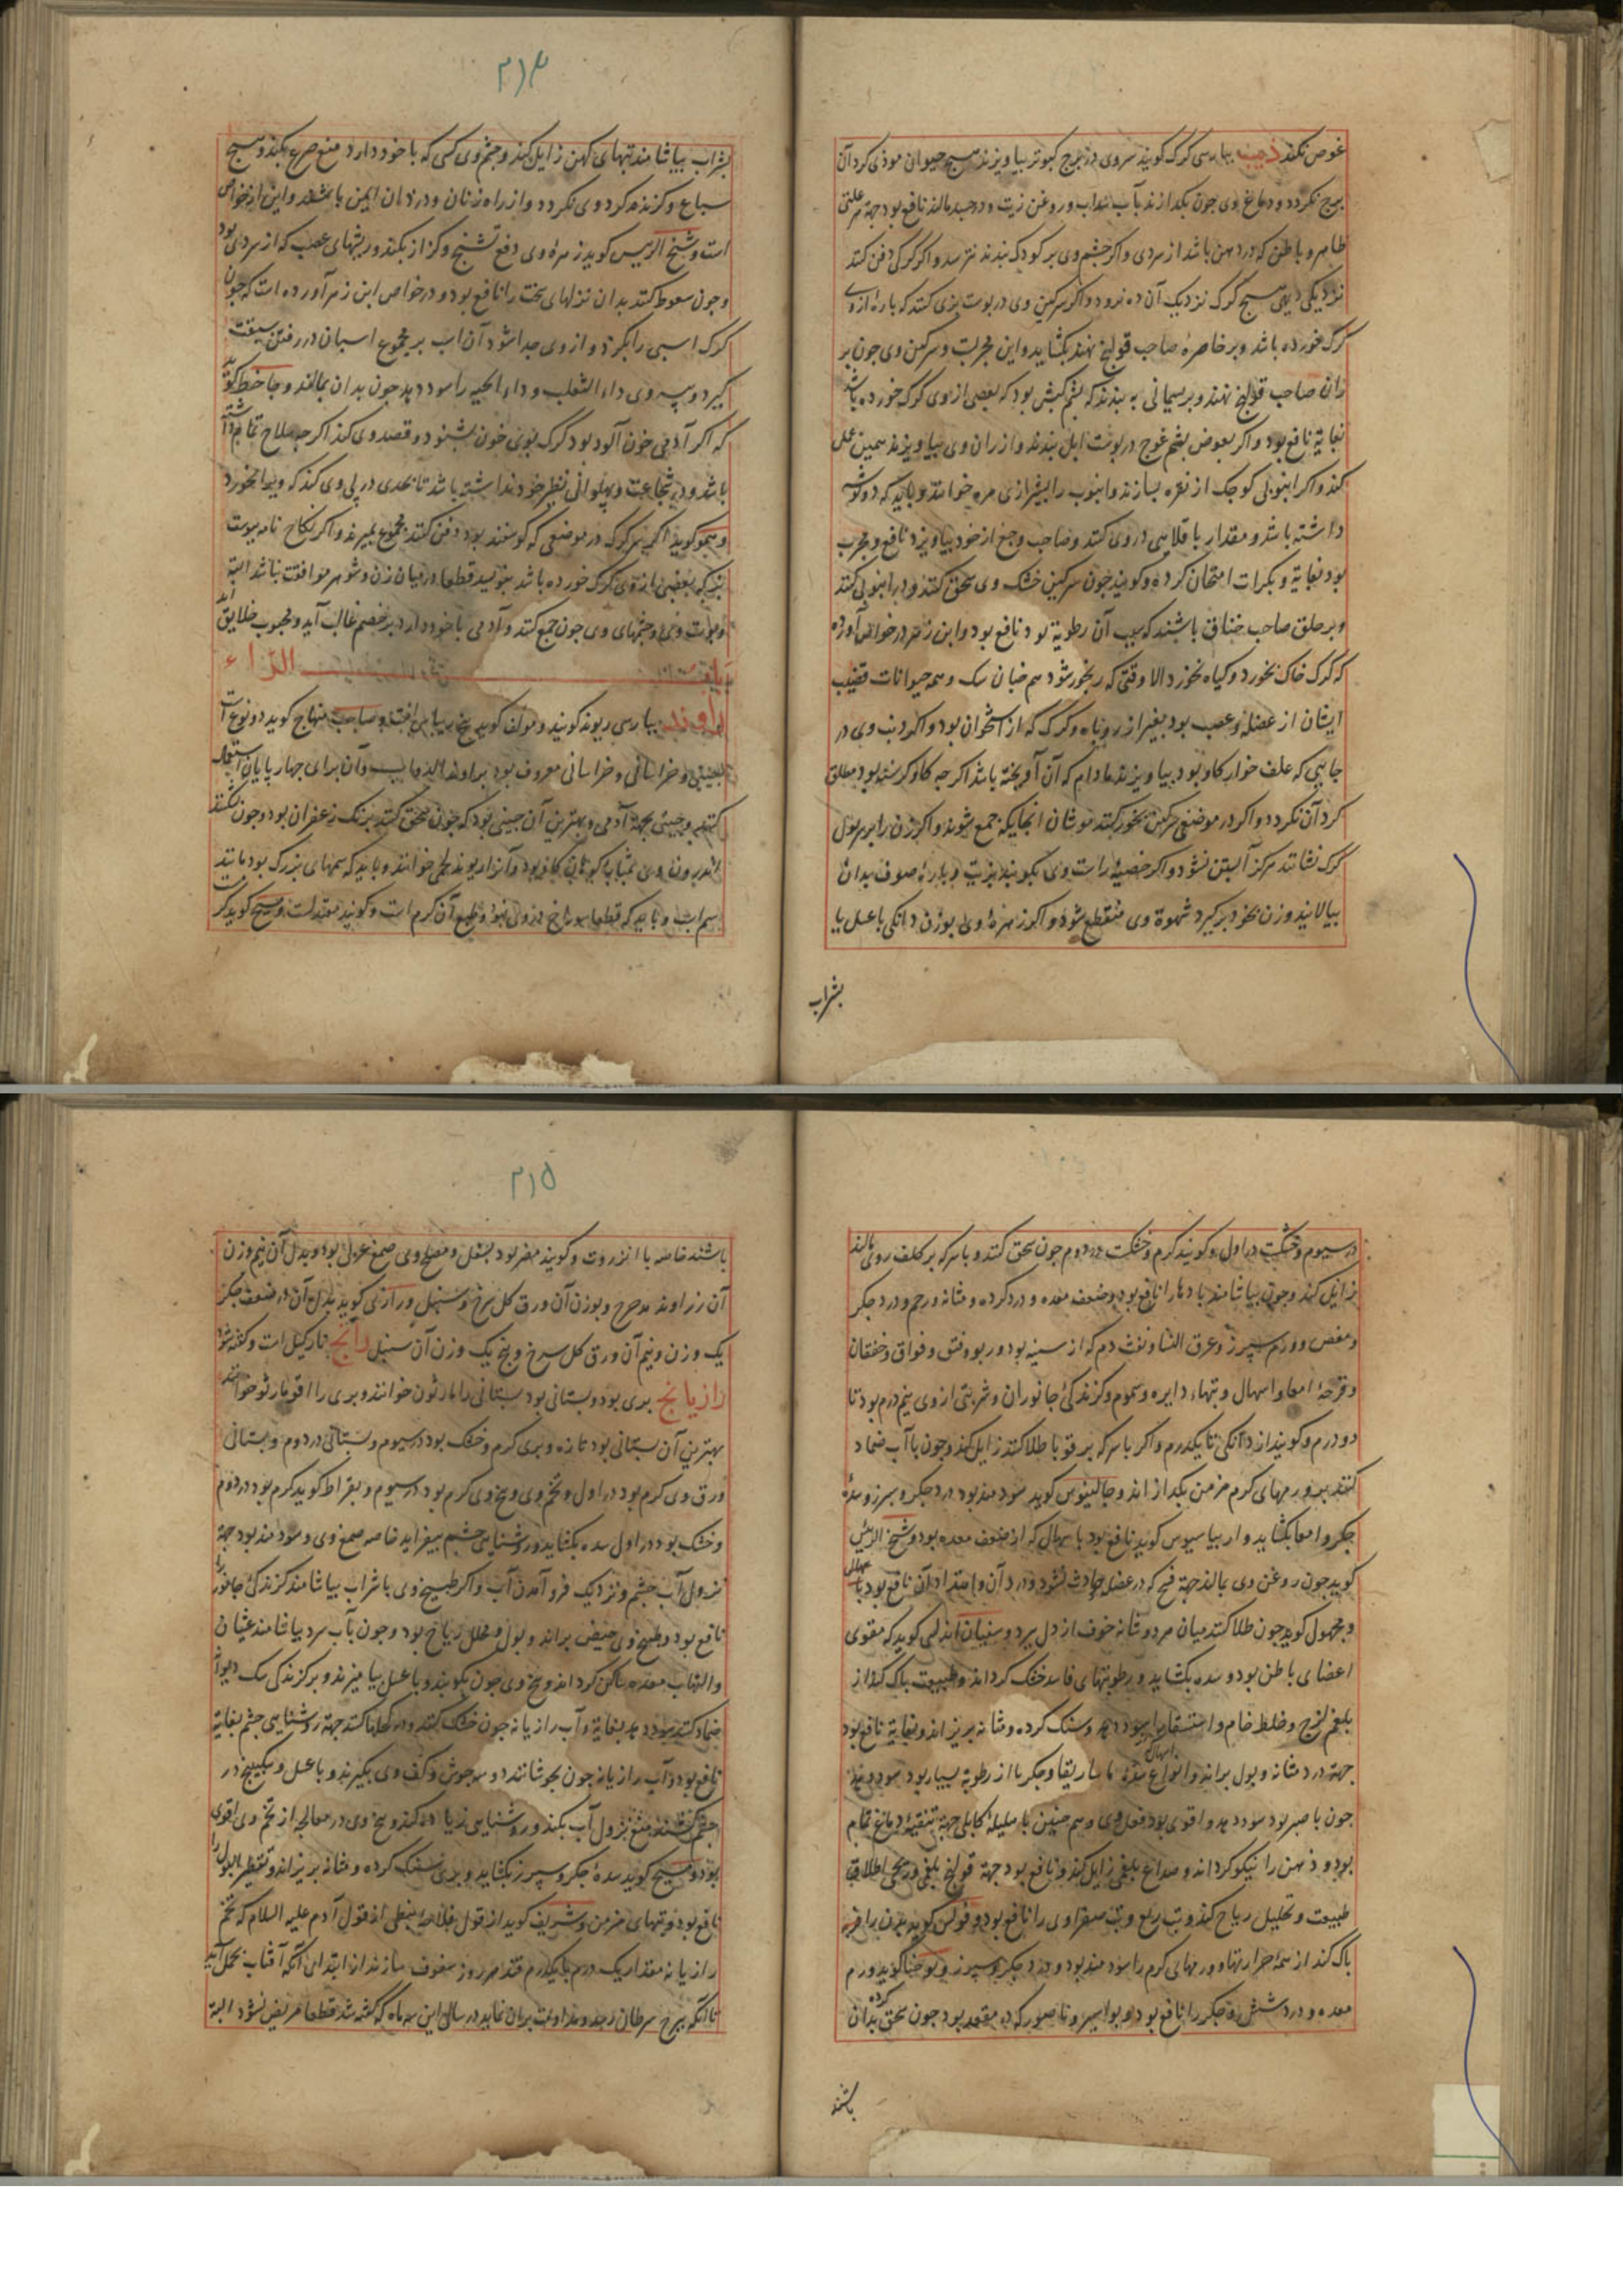 غوص نکند ذیب بپارسی کرک کویند سروی در برج کبوتر بیاویزند هیچ حیوان موذی کرد آن
برج نکردد و دماغ وی چون بکدازند بآب سداب و روغن زیت و در جسد مالند نافع بود جهة هر علتی
ظاهر و باطن که در بدن باشد از سردی و اکر چشم وی بر کودک بندند نترسد و اکر کرکی دفن کنند
نزدیکی دیهی هیچ کرک نزدیک آن ده نرود و اکر سرکین وی در پوست بزی کنند که پاره از وی
کرک خورده باشد و بر خاصره صاحب قولنج نهند بکشاید و این مجربست و سرکین وی چون بر
ران صاحب قولنج نهند و بریسمانی به بندند که پشم کبش بود که بعضی از وی کرک خورده باشد
بغایة نافع بود و اکر بعوض پشم غوج در پوست ایل بندند و از ران وی بیاویزند همین عمل
کند و اکر انبوبی کوچک از نقره بسازند و انبوب را بشیرازی مره خوانند و باید که دو کوشه
داشته باشد و مقدار باقلایی در وی کنند و صاحب وجع از خود بیاویزد نافع و مجرب
بود بغایة و بکرات امتحان کرده و کویند چون سرکین خشک وی سحق کنند و در انبوبی کنند
و بر حلق صاحب خناق باشند که سبب آن رطوبة بود نافع بود و ابن زهر در خواص آورده
که کرک خاک نخورد و کیاه نخورد الا وقتی که رنجور شود هم خبان سک و همه حیوانات قضیب
ایشان از عضله و عصب بود بغیر از روباه و کرک که از استخوان بود و اکر ذنب وی در
جایی که علف خوار کاو بود بیاویزند مادام که آن آویخته باشد اکر چه کاو کرسنه بود مطلق
کرد آن نکردد و اکر در موضعی سرکین بخور کنند موشان انجایکه جمع شوند و اکر زن را بر بول
کرک نشانند هرکز آبستن نشود و اکر خصیه راست وی بکوبند بزیت و پاره صوف بدان
بیالایند و زن بخود برکیرد شهوة وی منقطع شود و اکر زهره وی بوزن دانکی با عسل یا
بشراب
۲۱۴
بشراب بیاشامند تبهای کهن زایل کند و چشم وی کسی که با خود دارد منع صرع بکند و هیچ
سباع و کزنده کرد وی نکردد و از راه زنان و دزدان ایمن باشند و این از خواص
است و شیخ الرییس کوید زهره وی دفع تشنج و کزاز بکند و ریشهای عصب که از سردی بود
و چون سعوط کنند بدان نزلهای سخت را نافع بود و در خواص ابن زهر آورده است که چون
کرک اسبی را بکیرد و از وی جدا شود آن اسب بر مجموع اسبان در رفتن سبقت
کیرد و پیه وی داء الثعلب و داء الحیه را سود دهد چون بدان بمالند و جاحظ کوید
که اکر آدمی خون آلود بود کرک بوی خون بشنود و قصد وی کند اکر چه سلاح تمام داشته
باشد و در شجاعت و پهلوانی نظیر خود نداشته باشد تا بحدی در پی وی کند که ویرا بخورد
و همو کوید اکر سر کرک در موضعی که کوسفند بود دفن کنند مجموع بمیرند و اکر نکاح نامه بپوست
بز که بعضی از وی کرک خورده باشد بنویسند قطعا در میان زن و شوهر موافقت نباشد البته
و پوست وی و چشمهای وی چون جمع کنند و آدمی با خود دارد بر خصم غالب آید و محبوب خلایق آید
الراء
راوند بپارسی ریوند کویند و مولف کوید بیخ ریباس است و صاحب منهاج کوید دو نوع است
چینی و خراسانی و خراسانی معروف بود براوند الدواب و آن برای چهار پایان استعمال
کنند و چینی بجهة آدمی و بهترین آن چینی بود که چون سحق کنند برنک زعفران بود و چون بشکنند
اندرون وی بمثابه کوهان کاو بود و آنرا ریوند لحمی خوانند و باید که سمهای بزرک بود مانند
سم اسب و باید که قطعا سوراخ در وی نبود و طبع آن کرم است و کویند معتدلست و مسیح کوید کرمست
در سیوم و خشکست در اول و کویند کرم و خشکست در دوم چون سحق کنند و با سرکه بر کلف روی مالند
زایل کند و چون بیاشامند بادها را نافع بود و ضعف معده و درد کرده و مثانه و رحم و درد جکر
و مغص و ورم سپرز و عرق النسا و نفث دم که از سینه بود و ربو و فتق و فواق و خفقان
و قرحه امعا و اسهال و تبهاء دایره و سموم و کزندکی جانوران و شربتی از وی نیم درم بود تا
دو درم و کویند از دانکی تا یکدرم و اکر با سرکه بر قوبا طلا کنند زایل کند و چون با آب ضماد
کنند بر ورمهای کرم مزمن بکدازاند و جالینوس کوید سودمند بود درد جکر و سپرز و سده
جکر و امعا بکشاید و اریباسیوس کوید نافع بود باسهال که از ضعف معده بود و شیخ الرئیس
کوید چون روغن وی بمالند جهة فسخ که در عضل حادث شود و درد آن و امتداد آن نافع بود
و مجهول کوید چون طلا کنند میان هر دو شانه خوف از دل ببرد و سفیان اندلسی کوید که مقوی
اعضای باطن بود و سده بکشاید و رطوبتهای فاسد خشک کرداند و طبیعت پاک کند از
بلغم لزج و خلط خام و استسقا را سود دهد و سنک کرده و مثانه بریزاند و بغایة نافع بود
جهة درد مثانه و بول براند و انواع سده ماساریقا و جکر با از رطوبة بسیار بود سود دهد
چون با صبر بود سود دهد و اقوی بود فعل وی و هم چنین با هلیله کابلی جهة تنقیه دماغ تمام
بود و ذهن را نیکو کرداند و صداع بلغمی زایل کند و نافع بود جهة قولنج بلغمی و ریحی اطلاق
طبیعت و تحلیل ریاح کند و تب ربع و تب صفراوی را نافع بود و فولس کوید بدن را قوة
پاک کند از همه حرارتها و ورمهای کرم را سودمند بود و درد جکر و سپرز و یوحنا کوید ورم
معده و درد شش و جکر را نافع بود و بواسیر و ناصور که در مقعد بود چون سحق کرده بدان
باشند
۲۱۵
باشند خاصه با انزروت و کویند مضر بود بسفل و مصلح وی صمغ عربی بود و بدل آن نیم وزن
آن زراوند مدحرج و بوزن آن ورق کل سرخ و سنبل و رازی کوید بدل آن در ضعف جکر
یک وزن و نیم آن ورق کل سرخ و پنج یک وزن آن سنبل رانج نارکیل است و کفته شود
رازیانج بری بود و بستانی بود بستانی را مارثون خوانند و بری را اقومارثو خوانند
بهترین آن بستانی بود تازه و بری کرم و خشک بود در سیوم و بستانی در دوم و بستانی
ورق وی کرم بود در اول و تخم وی و بیخ وی کرم بود در سیوم و بقراط کوید کرم بود در دوم
و خشک بود در اول سده بکشاید و روشنایی چشم بیفزاید خاصه صمغ وی و سودمند بود جهة
نزول آب چشم و نزدیک فرو آمدن آب و اکر طبیخ وی با شراب بیاشامند کزندکی جانورانرا
نافع بود و طبیخ وی حیض براند و بول و محلل ریاح بود و چون بآب سرد بیاشامند غثیان
و التهاب معده ساکن کرداند و بیخ وی چون بکوبند و با عسل بیامیزند و بر کزندکی سک دیوانه
ضماد کنند سود دهد بغایة و آب رازیانه چون خشک کنند و در کحلها کنند جهة روشنایی چشم بغایة
نافع بود و آب رازیانه چون بجوشانند دو سه جوش و کف وی بکیرند و با عسل و سکبینج در
چشم کشند منع نزول آب بکند و روشنایی زیاده کند و بیخ وی در معالجه از تخم وی اقوی
بود و مسیح کوید سده جکر و سپرز بکشاید و بری سنک کرده و مثانه بریزاند و تقطیر البول را
نافع بود و تبهای مزمن و شریف کوید از قول فلاحه نبطی از قول آدم علیه السلام که تخم
رازیانه مقدار یک درم با یکدرم قند هر روز سفوف سازند از ابتدای آنکه آفتاب بحمل آید
تا آنکه ببرج سرطان رسد و مداومت بر آن نماید در سالی این سه ماه که کفته شد قطعا مریض نشود البته